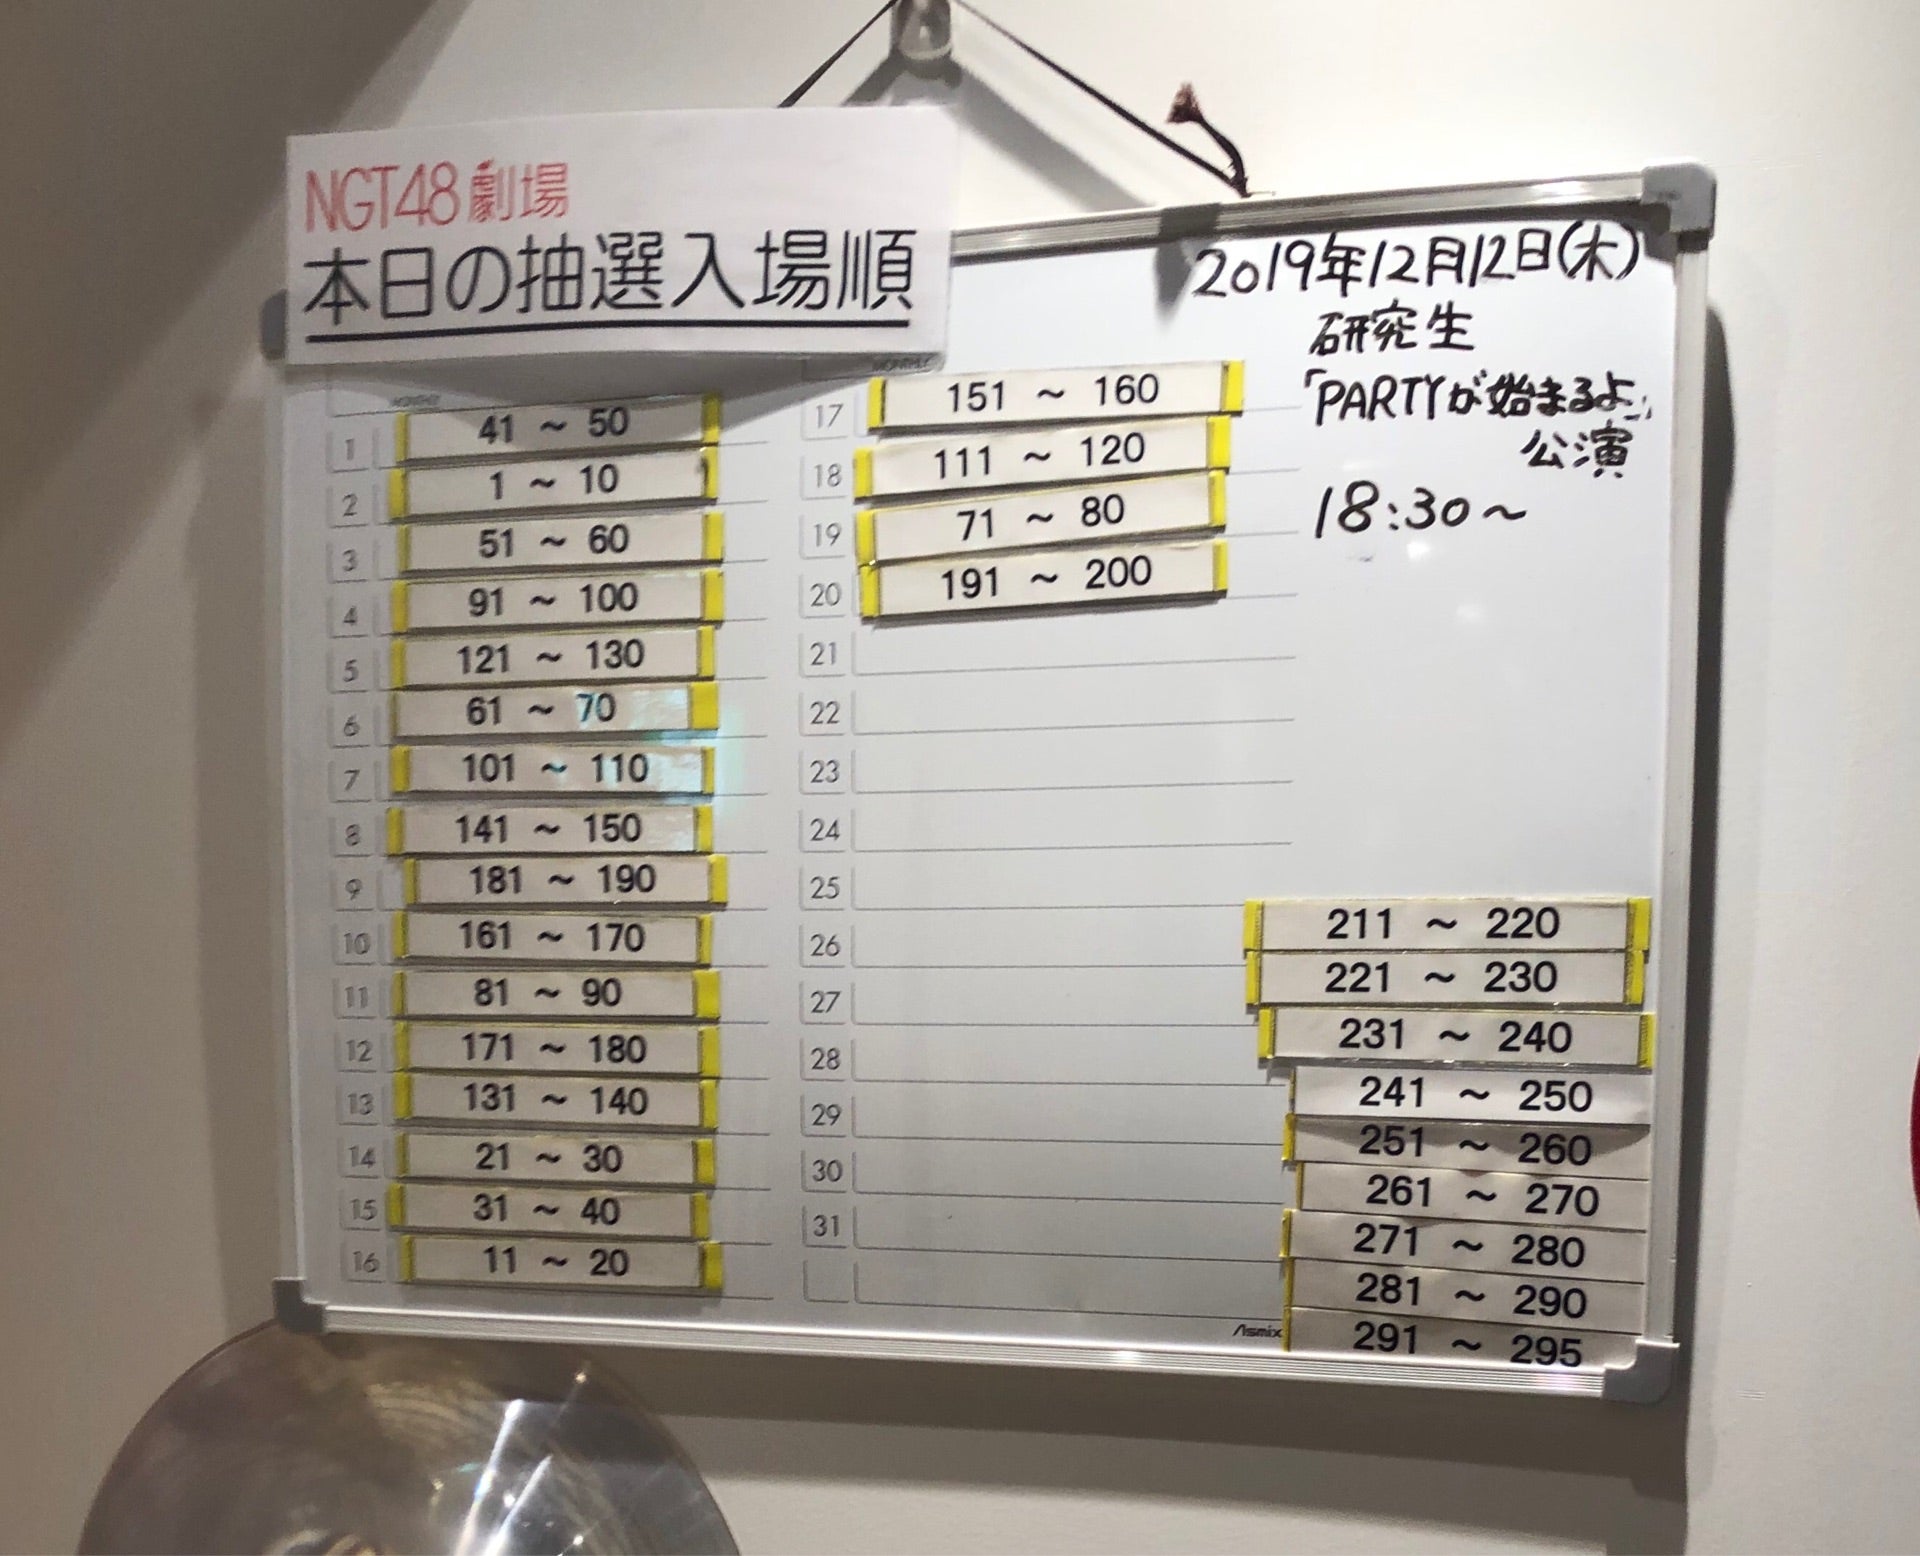 NGT48劇場
本日の抽選入場順
2019年12月12日(木)
研究生
「PARTYが始まるよ」
公演
18:30~
1 41 ~ 50
2 1 ~ 10
3 51 ~ 60
4 91 ~ 100
5 121 ~ 130
6 61 ~ 70
7 101 ~ 110
8 141 ~ 150
9 181 ~ 190
10 161 ~ 170
11 81 ~ 90
12 171 ~ 180
13 131 ~ 140
14 21 ~ 30
15 31 ~ 40
16 11 ~ 20
17 151 ~ 160
18 111 ~ 120
19 71 ~ 80
20 191 ~ 200
21
22
23
24
25
26
27
28
29
30
31
211 ~ 220
221 ~ 230
231 ~ 240
241 ~ 250
251 ~ 260
261 ~ 270
271 ~ 280
281 ~ 290
291 ~ 295
Asmix